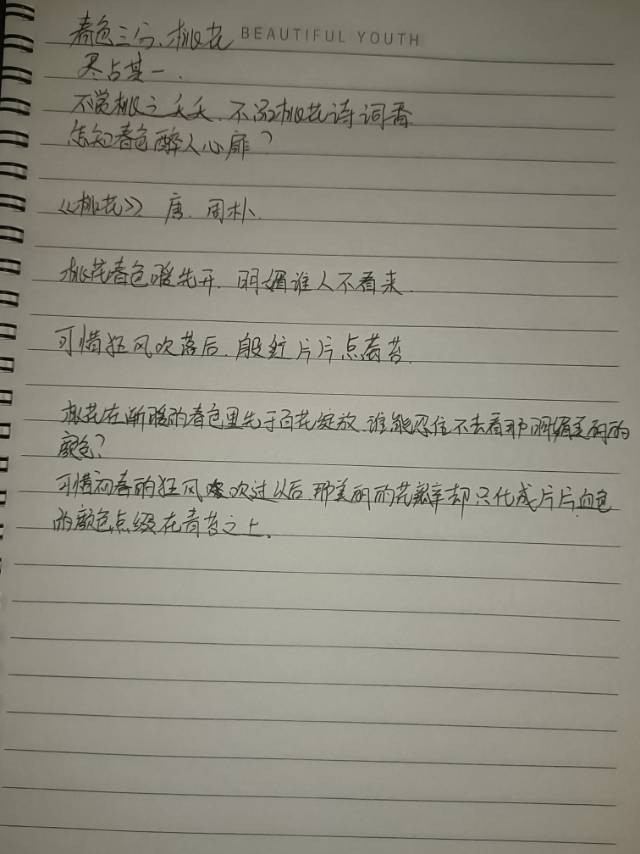 春色三分、桃花 BEAUTIFUL YOUTH
尽占其一.
不觉桃之夭夭.不沤桃花诗词香
怎知春色醉人心扉?
《桃花》唐.周朴.
桃花春色暖先开.明媚谁人不看来.
可惜狂风吹落后.殷红片片点莓苔.
桃花在渐暖的春色里先于百花绽放.谁能忍住不去看那明媚美丽的
颜色?
可惜初春的狂风吹过以后.那美丽的花瓣却只化成片片血色
的颜色点缀在青苔之上.